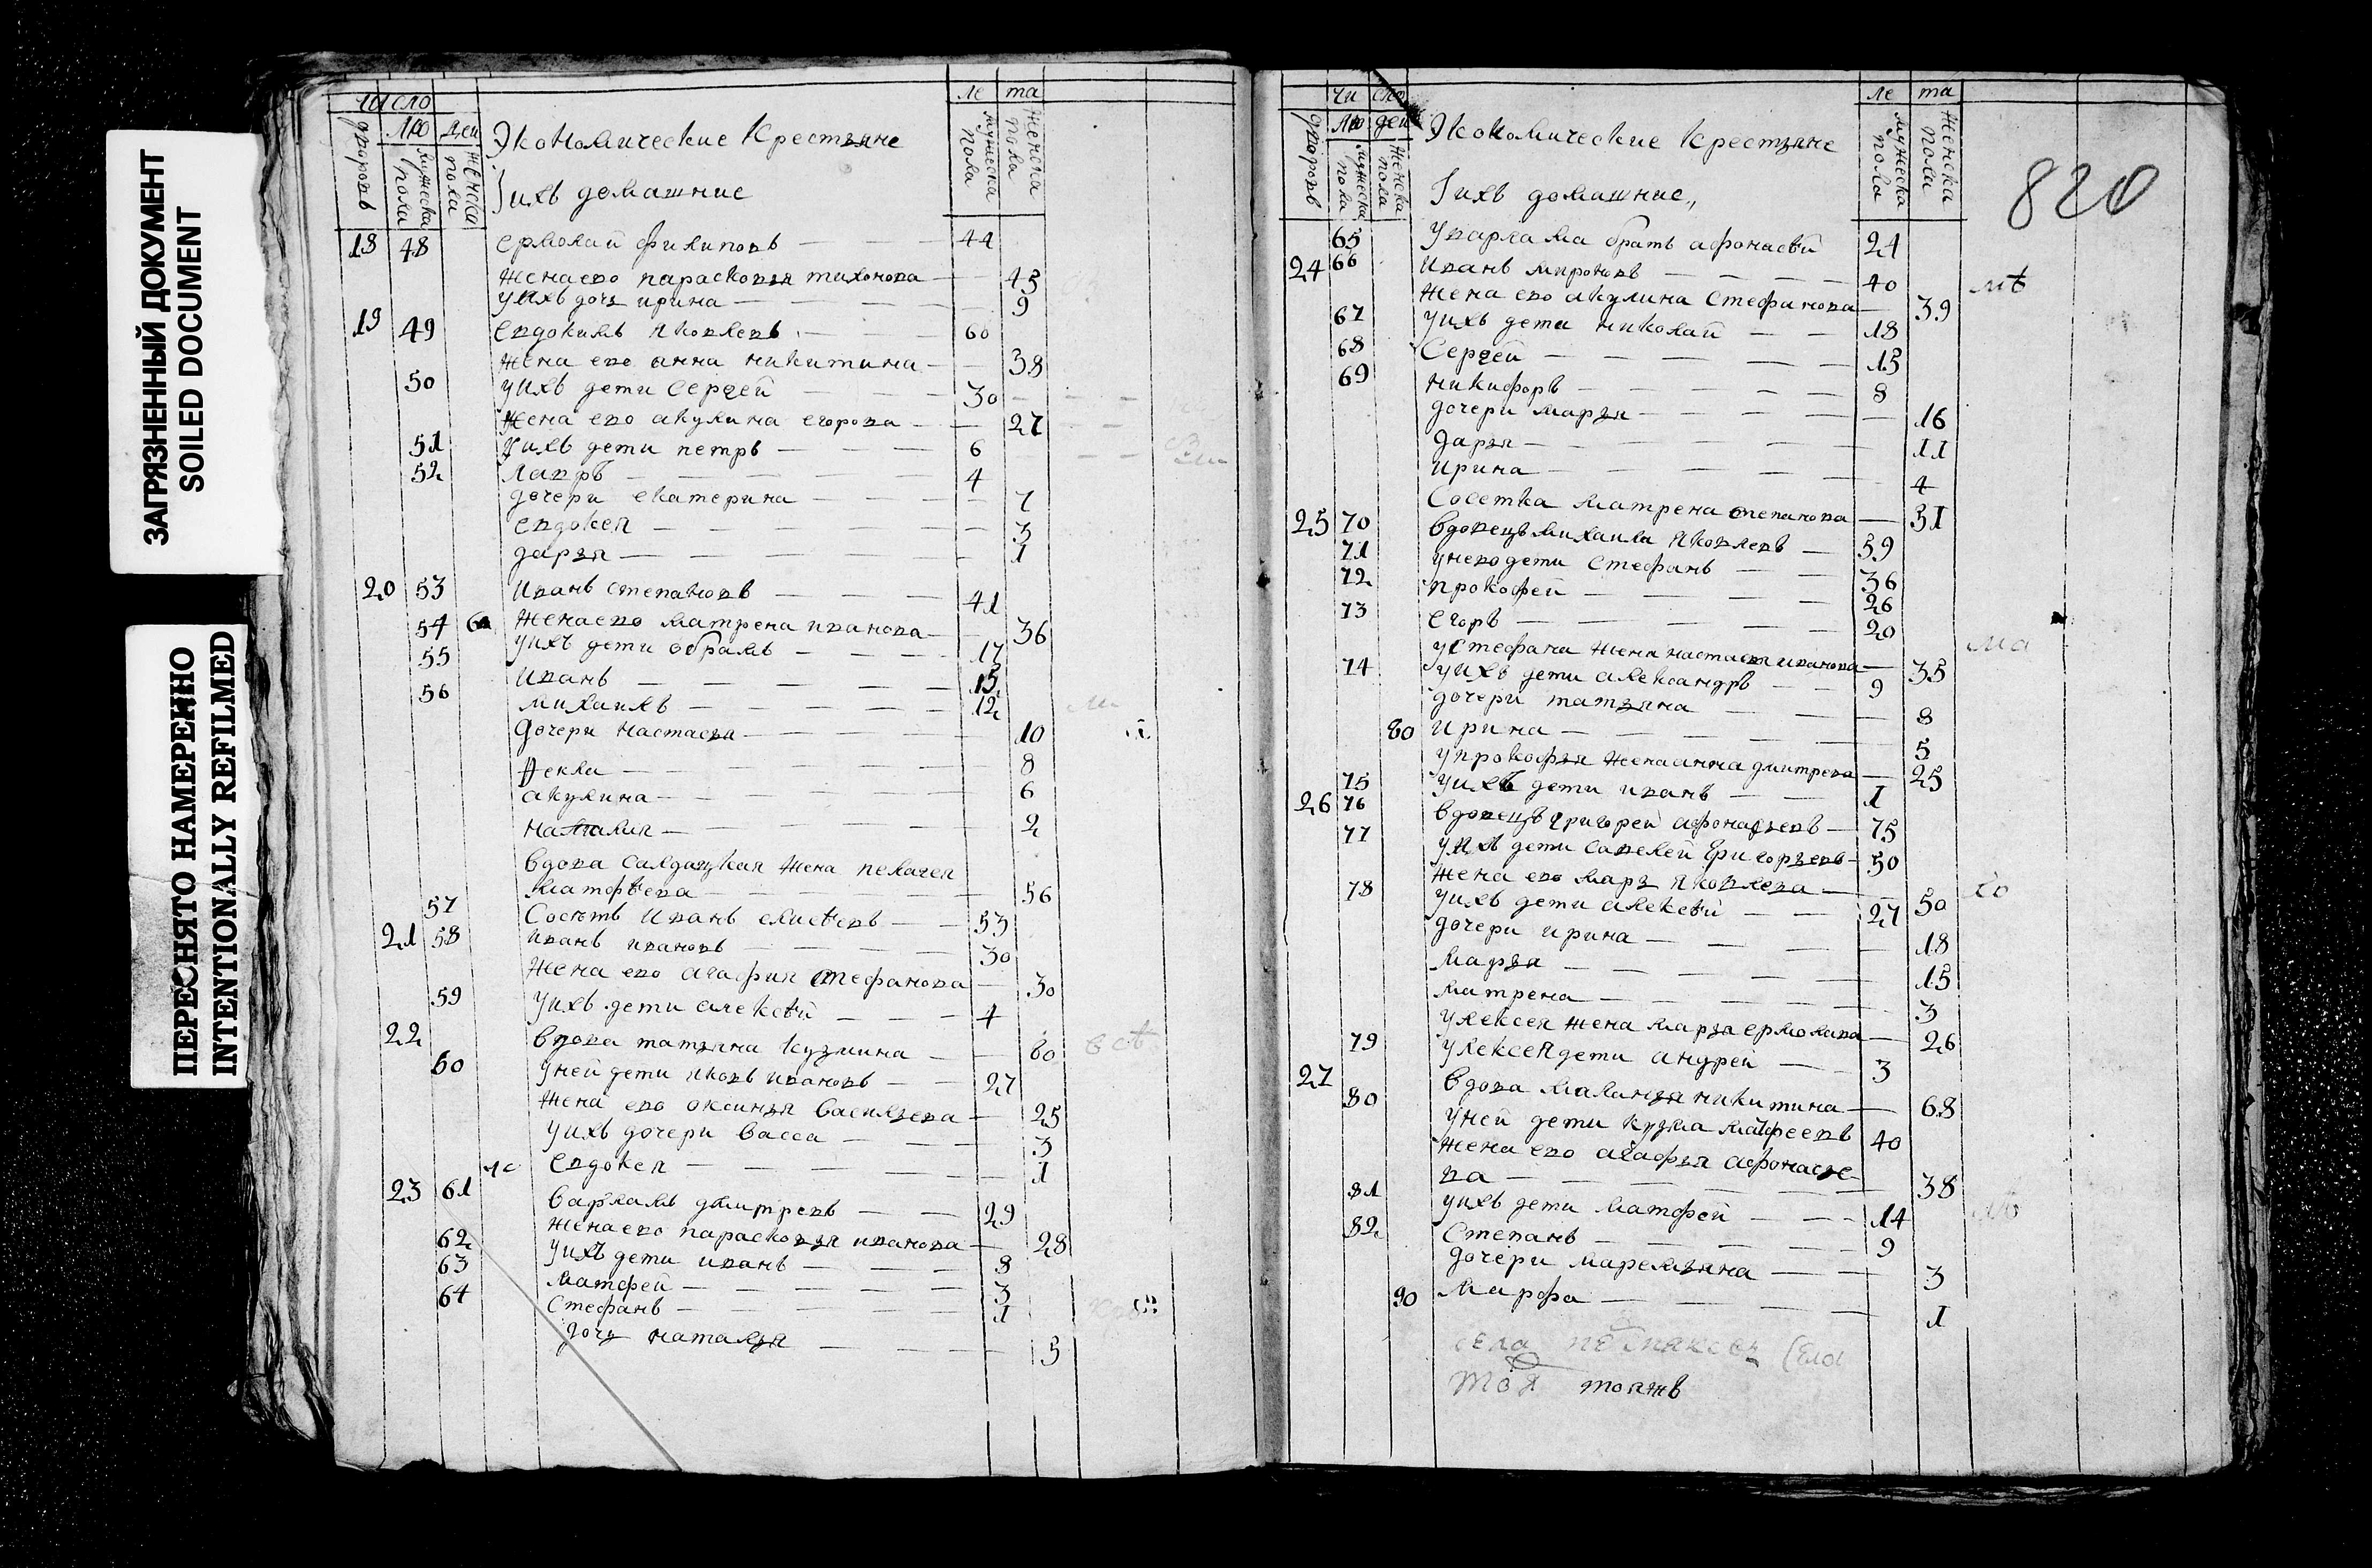 ЗАГРЯЗНЕННЫЙ ДОКУМЕНТ
SOILED DOCUMENT
ПЕРЕСНЯТО НАМЕРЕННО
INTENTIONALLY REFILMED
число ле та
дворовъ лю дей Экономические крестьяне мужеска пола женска пола
мужеска пола женска пола Iихъ домашние
18 48 ермолай филиповъ 44
жена ево парасковья тихонова 45
уихъ дочь ирина 9
19 49 евдокимъ яковлевъ 60
жена ево анна никитина 38
50 уихъ дети сергей 30
жена ево акулина егорова 27
51 уихъ дети петръ 6
52 лавръ 4
дочери екатерина 7
евдокея 3
дарья 1
20 53 иванъ степановъ 41
жена ево матрена иванова 36
54 уихъ дети обрамъ 17
55 иванъ 15
56 михаилъ 12
дочери настасья 10
фекла 8
акулина 6
наталия 2
вдова салдацкая жена пелагея
матфѣева 56
57 Сосетъ иванъ елисѣевъ 53
21 58 иванъ ивановъ 30
жена ево агафия стефанова 30
59 уихъ дети алексѣй 4
22 вдова татьяна кузмина 60
60 уней дети яковъ ивановъ 27
жена ево оксинья васильева 25
уихъ дочери васса 3
евдокея 1
23 61 варламъ дмитревъ 29
жена ево парасковья иванова 28
62 уихъ дети иванъ 8
63 матфей 3
64 стефанъ 1
дочь наталья 5
чи сло ле та
дворовъ лю дей Экономические крестьяне мужеска пола женска пола
мужеска пола женска пола Iихъ домашние
820
65 уварлама братъ афонасѣй 24
24 66 иванъ мироновъ 40
жена ево акулина стефанова 39
67 уихъ дети николай 18
68 Сергей 15
69 никифоръ 8
дочери марья 16
дарья 11
ирина 4
Сосетка матрена степанова 51
25 70 вдовецъ михаила яковлевъ 59
71 унево дети стефанъ 36
72 прокофей 26
73 егоръ 20
устефана жена настасья иванова 35
74 уихъ дети александръ 9
дочери татьяна 8
80 ирина 5
упрокофья жена анна дмитрева 25
75 уихъ дети иванъ 1
26 76 вдовецъ григорей афонасьевъ 75
77 уихъ дети савелей григорьевъ 50
жена ево марья яковлева 50
78 уихъ дети алексѣй 27
дочери ирина 18
марья 15
матрена 3
улексея жена марья ермолава 26
79 улексея дети андрей 3
27 вдова маланья никитина 68
80 уней дети кузма матфеевъ 40
жена ево агафья афонасье
ва 38
81 уихъ дети матфей 14
82 Степанъ 9
дочери маремьяна 3
90 марфа 1
села
той тоянъ